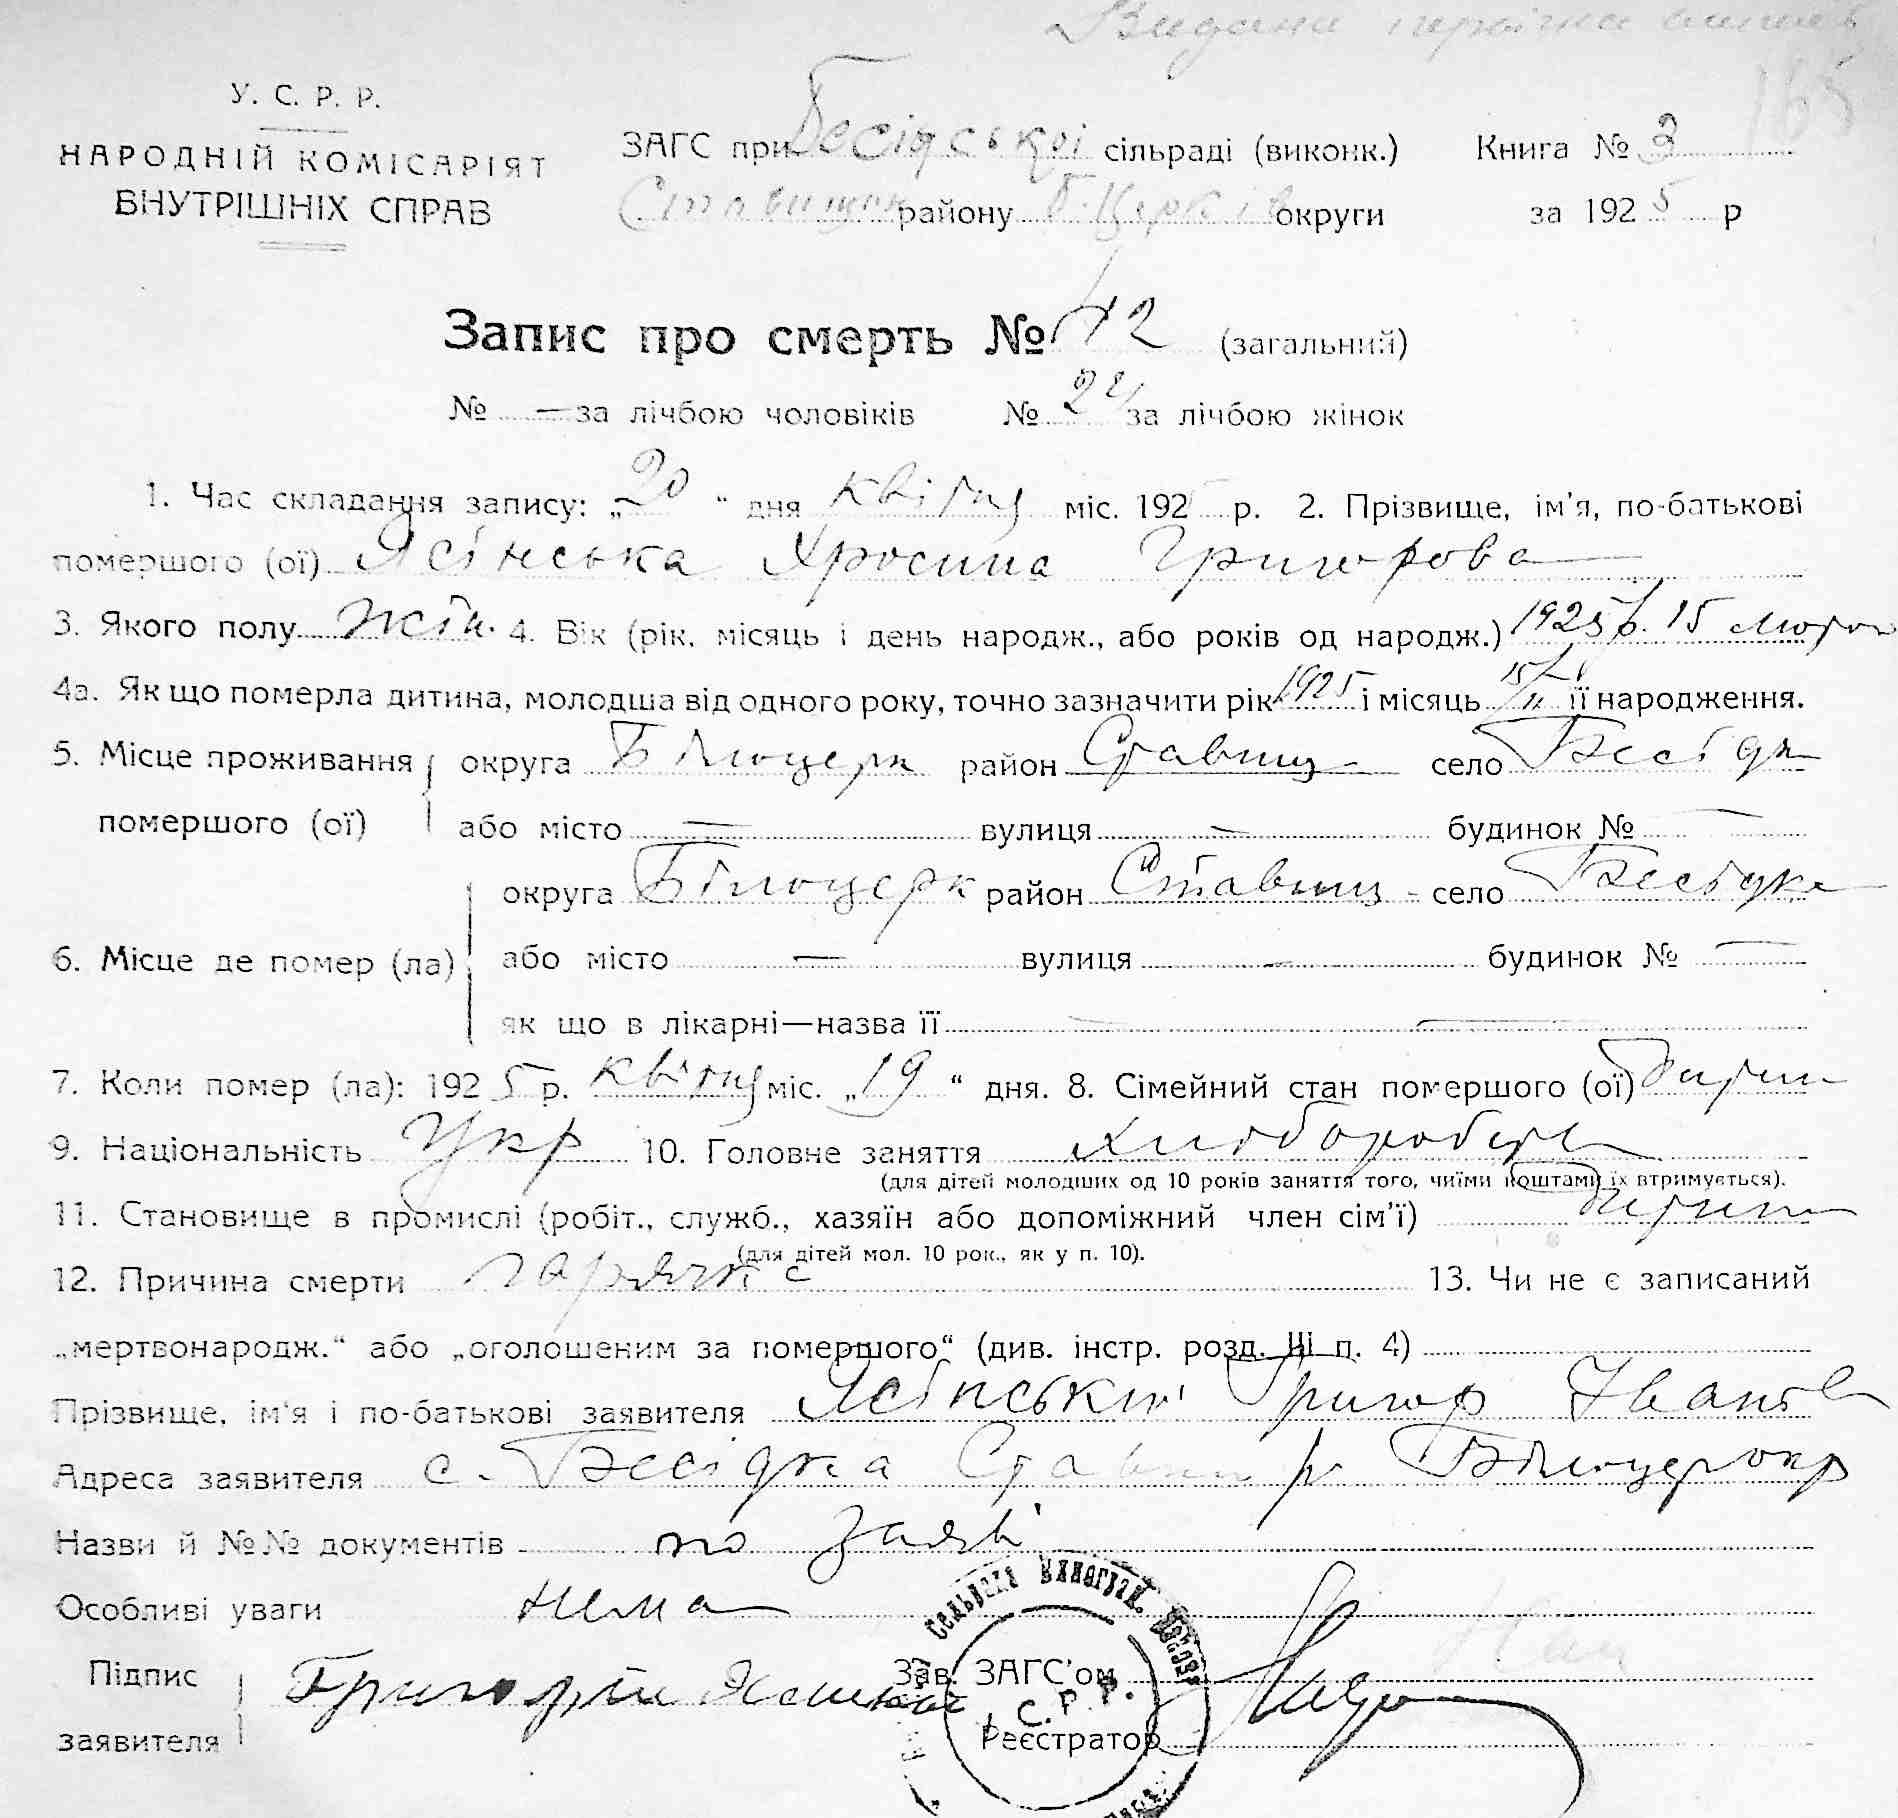 Видана
165
У. С. Р. Р.
НАРОДНІЙ КОМІСАРІЯТ
ВНУТРІШНІХ СПРАВ
ЗАГС при Бесідській сільраді (виконк.) Книга № 3
Ставищ району Б.Церків округи за 1925 р
Запис про смерть № 42 (загальний)
№ — за лічбою чоловіків № 24 за лічбою жінок
1. Час складання запису: „20“ дня квітня міс. 192 р. 2. Прізвище, ім'я, по-батькові
помершого (ої) Ясінська Хросина Григорова
3. Якого полу жін. 4. Вік (рік, місяць і день народж., або років од народж.) 1925 р. 15 лютого
4а. Як що померла дитина, молодша від одного року, точно зазначити рік 1925 і місяць 15/II її народження.
5. Місце проживання округа Білоцерк район Ставищ село Бесідка
помершого (ої) або місто — вулиця — будинок № —
округа Білоцерк район Ставищ - село Бесідка
6. Місце де помер (ла) або місто — вулиця — будинок № —
як що в лікарні—назва її — —
7. Коли помер (ла): 1925 р. квітня міс. „19“ дня. 8. Сімейний стан помершого (ої) дитина
9. Національність Укр 10. Головне заняття хлібороб
(для дітей молодших од 10 років заняття того, чиїми коштами їх втримується).
11. Становище в промислі (робіт., служб., хазяїн або допоміжний член сім'ї) дитина
(для дітей мол. 10 рок., як у п. 10).
12. Причина смерти гарячка 13. Чи не є записаний
„мертвонародж.“ або „оголошеним за помершого“ (див. інстр. розд. Ш п. 4)
Прізвище, ім'я і по-батькові заявителя Ясінський Григор Іванів
Адреса заявителя с. Бесідка Ставищ р Білоцерокр
Назви й №№ документів по заяві
Особливі уваги нема
Підпис Григорій Зав. ЗАГС'ом
заявителя С.Р.Р. Реєстратор